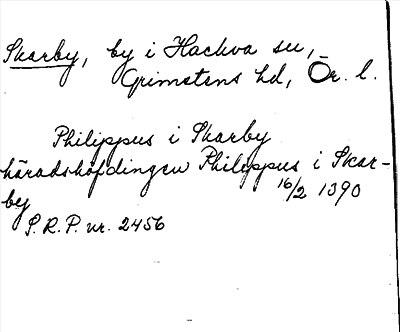 Skarby, by i Hackva sn,
Grimstens hd, Ör. l.
Philippus i Skarby
häradshöfdingen Philippus i Skar-
by 16/2 1390
S.R.P. nr. 2456